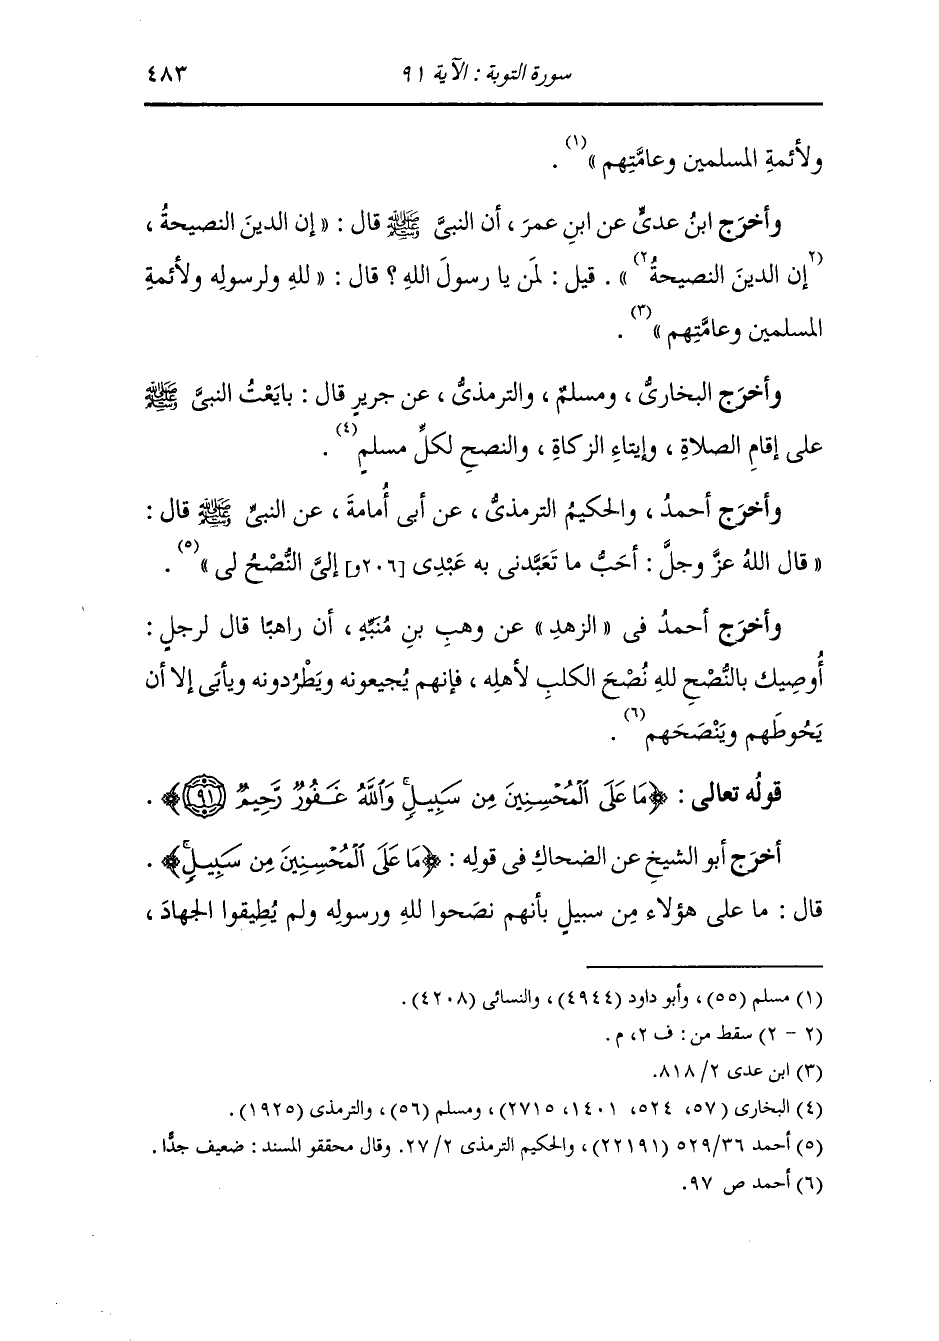 سورة التوبة : الآية ٩١ ٤٨٣
ولأئمةِ المسلمين وعامَّتِهم »(١) .
وأخرَج ابنُ عدىٍّ عن ابنِ عمرَ ، أن النبىَّ ﷺ قال : « إن الدينَ النصيحةُ ،
(٢)إن الدينَ النصيحةُ(٢) » . قيل : لمَن يا رسولَ اللهِ ؟ قال : « للهِ ولرسولِه ولأئمةِ
المسلمين وعامَّتِهم »(٣) .
وأخرَج البخارىُّ ، ومسلمٌ ، والترمذىُّ ، عن جريرٍ قال : بايَعْتُ النبىَّ ﷺ
على إقامِ الصلاةِ ، وإيتاءِ الزكاةِ ، والنصحِ لكلِّ مسلمٍ(٤) .
وأخرَج أحمدُ ، والحكيمُ الترمذىُّ ، عن أبى أُمامةَ ، عن النبىِّ ﷺ قال :
« قال اللهُ عزَّ وجلَّ : أحَبُّ ما تَعَبَّدنى به عَبْدِى [٢٠٦و] إلىَّ النُّصْحُ لى »(٥) .
وأخرَج أحمدُ فى « الزهدِ » عن وهبِ بنِ مُنَبِّهٍ ، أن راهبًا قال لرجلٍ :
أُوصِيك بالنُّصْحِ للهِ نُصْحَ الكلبِ لأهلِه ، فإنهم يُجيعونه ويَطْرُدونه ويأبَى إلا أن
يَحُوطَهم ويَنْصَحَهم(٦) .
قولُه تعالى : ﴿مَا عَلَى ٱلْمُحْسِنِينَ مِن سَبِيلٍ ۚ وَٱللَّهُ غَفُورٌ رَّحِيمٌ ٩١﴾ .
أخرَج أبو الشيخِ عن الضحاكِ فى قولِه : ﴿مَا عَلَى ٱلْمُحْسِنِينَ مِن سَبِيلٍ ۚ﴾ .
قال : ما على هؤلاء مِن سبيلٍ بأنهم نصَحوا للهِ ورسولِه ولم يُطِيقوا الجهادَ ،
(١) مسلم (٥٥) ، وأبو داود (٤٩٤٤) ، والنسائى (٤٢٠٨) .
(٢ - ٢) سقط من : ف ٢، م .
(٣) ابن عدى ٢/ ٨١٨.
(٤) البخارى (٥٧، ٥٢٤، ١٤٠١، ٢٧١٥) ، ومسلم (٥٦) ، والترمذى (١٩٢٥) .
(٥) أحمد ٥٢٩/٣٦ (٢٢١٩١) ، والحكيم الترمذى ٢/ ٢٧. وقال محققو المسند : ضعيف جدًّا .
(٦) أحمد ص ٩٧.